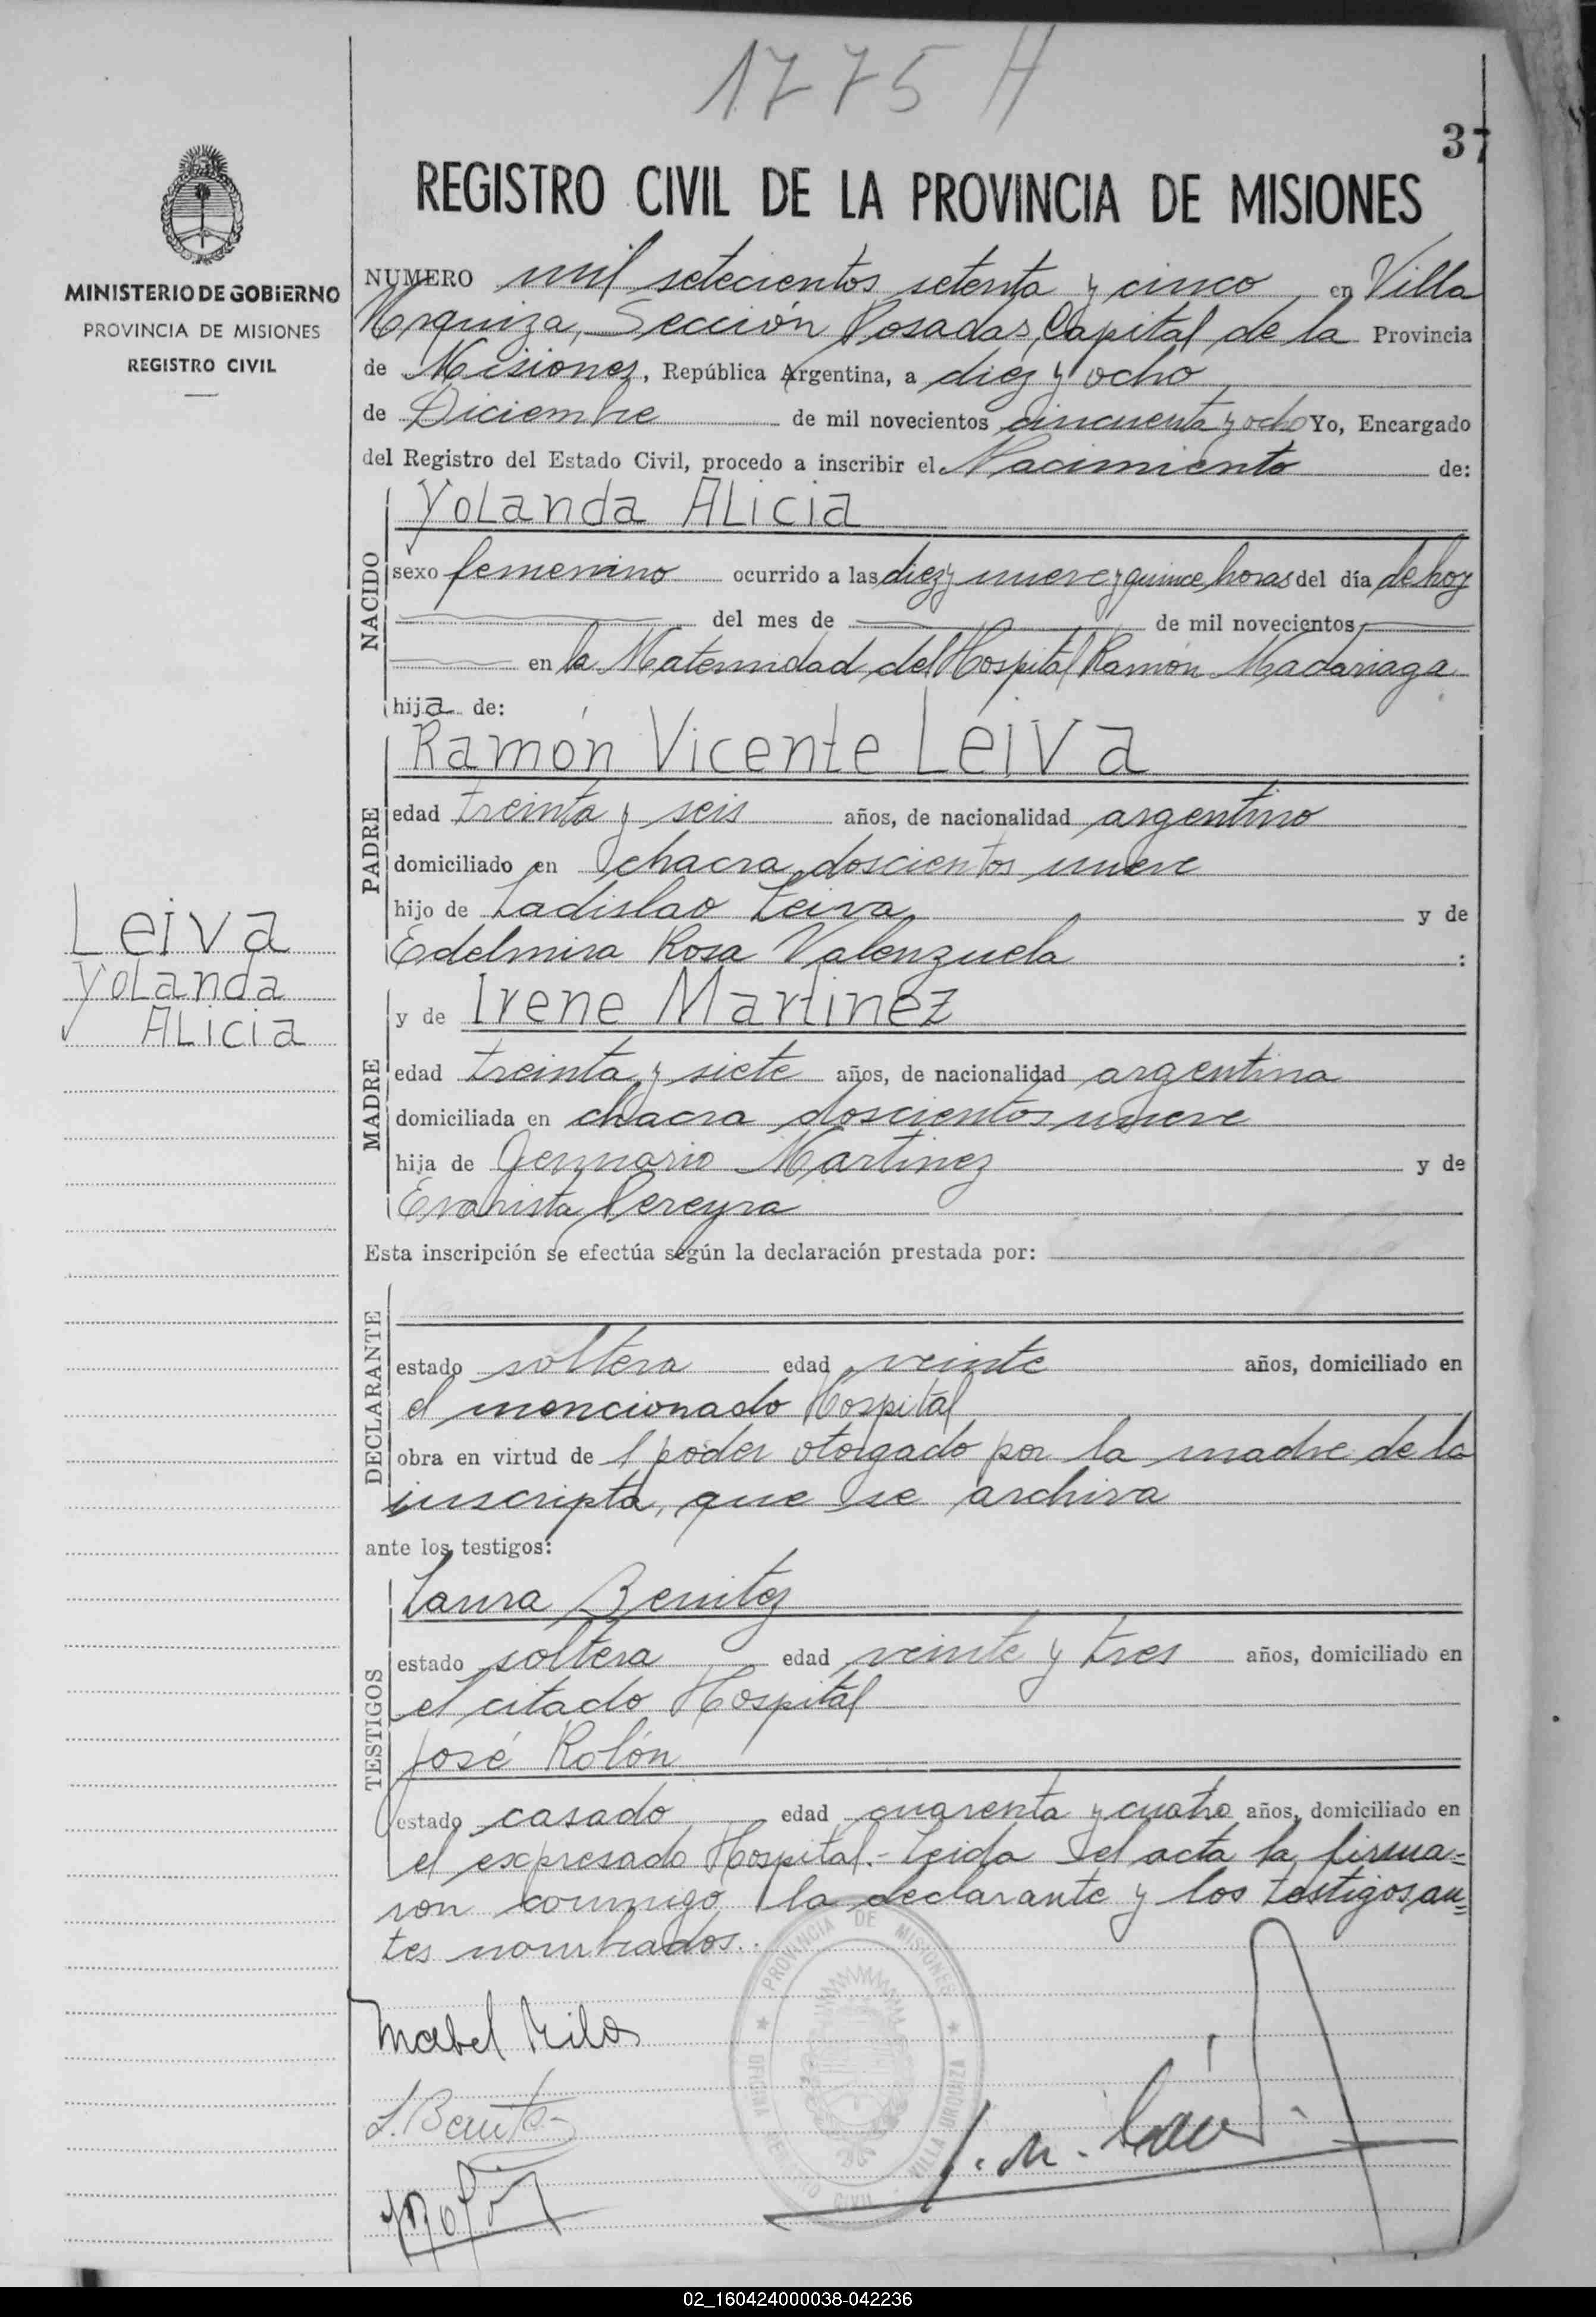 1775 H
37
REGISTRO CIVIL DE LA PROVINCIA DE MISIONES
MINISTERIO DE GOBIERNO
PROVINCIA DE MISIONES
REGISTRO CIVIL
NUMERO mil setecientos setenta y cinco en Villa
Urquiza, Sección Posadas, Capital de la Provincia
de Misiones, República Argentina, a diez y ocho
de Diciembre de mil novecientos cincuenta y ocho Yo, Encargado
del Registro del Estado Civil, procedo a inscribir el Nacimiento de:
Yolanda Alicia
NACIDO
sexo femenino ocurrido a las diez y nueve y quince horas del día de hoy
del mes de de mil novecientos
en la Maternidad del Hospital Ramón Madariaga
hija de:
Ramón Vicente Leiva
PADRE
edad treinta y seis años, de nacionalidad argentino
domiciliado en chacra doscientos nueve
hijo de Ladislao Leiva y de
Edelmira Rosa Valenzuela :
Leiva
Yolanda
Alicia
y de Irene Martinez
MADRE
edad treinta y siete años, de nacionalidad argentina
domiciliada en chacra doscientos nueve
hija de Gennario Martinez y de
Evarista Pereyra
Esta inscripción se efectúa según la declaración prestada por:
DECLARANTE
estado soltera edad veinte años, domiciliado en
el mencionado Hospital
obra en virtud de 1 poder otorgado por la madre de la
inscripta, que se archiva
ante los testigos:
TESTIGOS
Laura Benitez
estado soltera edad veinte y tres años, domiciliado en
el citado Hospital
José Rolón
estado casado edad cuarenta y cuatro años, domiciliado en
el expresado Hospital.- Leida el acta la firma=
ron conmigo la declarante y los testigos an=
tes nombrados.
PROVINCIA DE MISIONES
VILLA URQUIZA
Mabel
L. Benitez